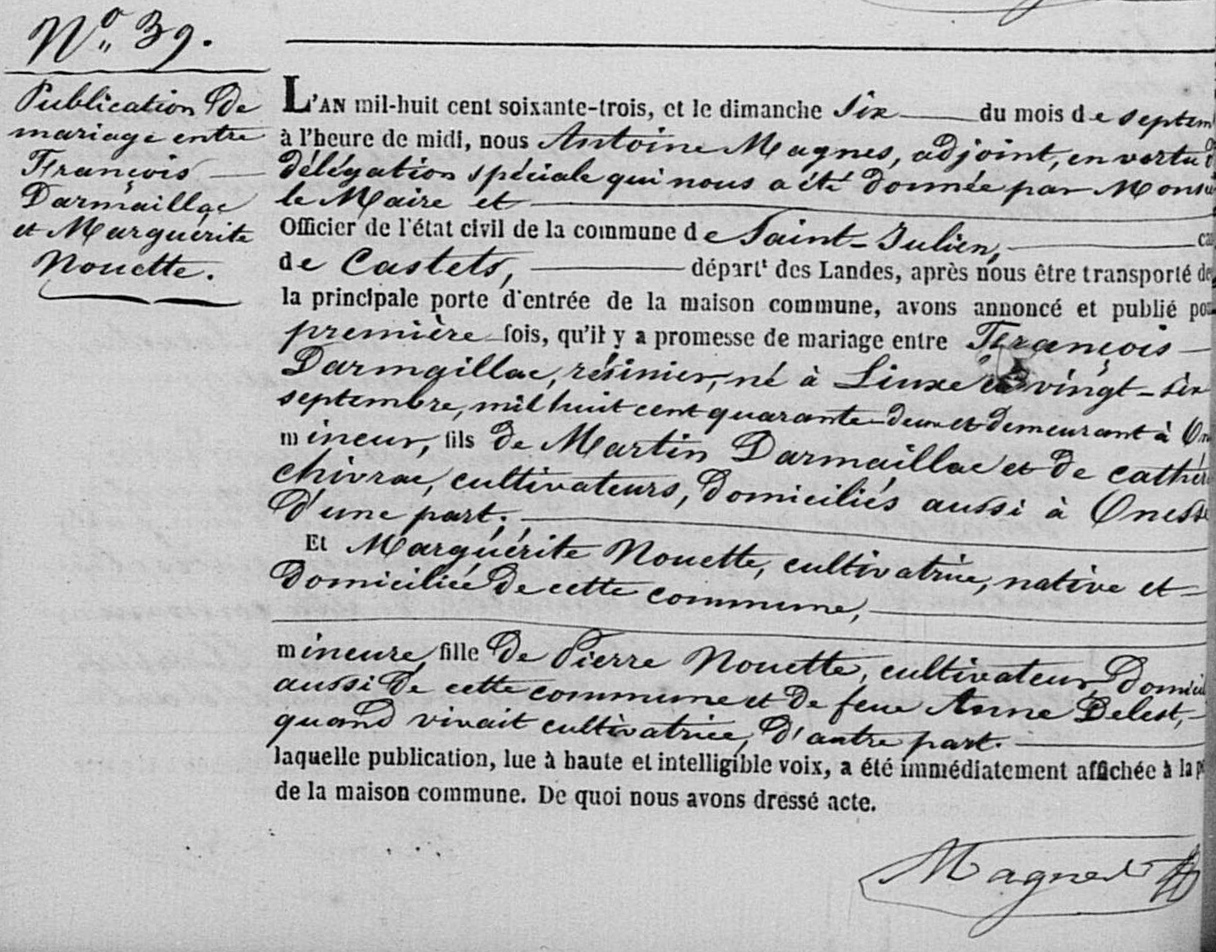 N.° 39.
Publication de
mariage entre
François
Darmaillac
et Marguerite
Nouette.
L'AN mil-huit cent soixante-trois, et le dimanche six du mois de septem
à l'heure de midi, nous Antoine Magnes, adjoint, en vertu d
délégation spéciale qui nous a été donnée par Monsi
le Maire et
Officier de l'état civil de la commune de Saint-Julien, ca
de Castets, départ^t des Landes, après nous être transporté de
la principale porte d'entrée de la maison commune, avons annoncé et publié pou
première fois, qu'il y a promesse de mariage entre François
Darmaillac, résinier, né à Linxe le vingt-six
septembre, mil huit cent quarante-deux et demeurant à On
mineur, fils de Martin Darmaillac et de cathéri
chivrac, cultivateurs, domiciliés aussi à Onesse
d'une part;
Et Marguérite Nouette, cultivatrice, native et
domiciliée de cette commune,
mineure, fille de Pierre Nouette, cultivateur, domicil
aussi de cette commune et de feue Anne Delest,
quand vivait cultivatrice, d'autre part.
laquelle publication, lue à haute et intelligible voix, a été immédiatement affichée à la p
de la maison commune. De quoi nous avons dressé acte.
Magnes